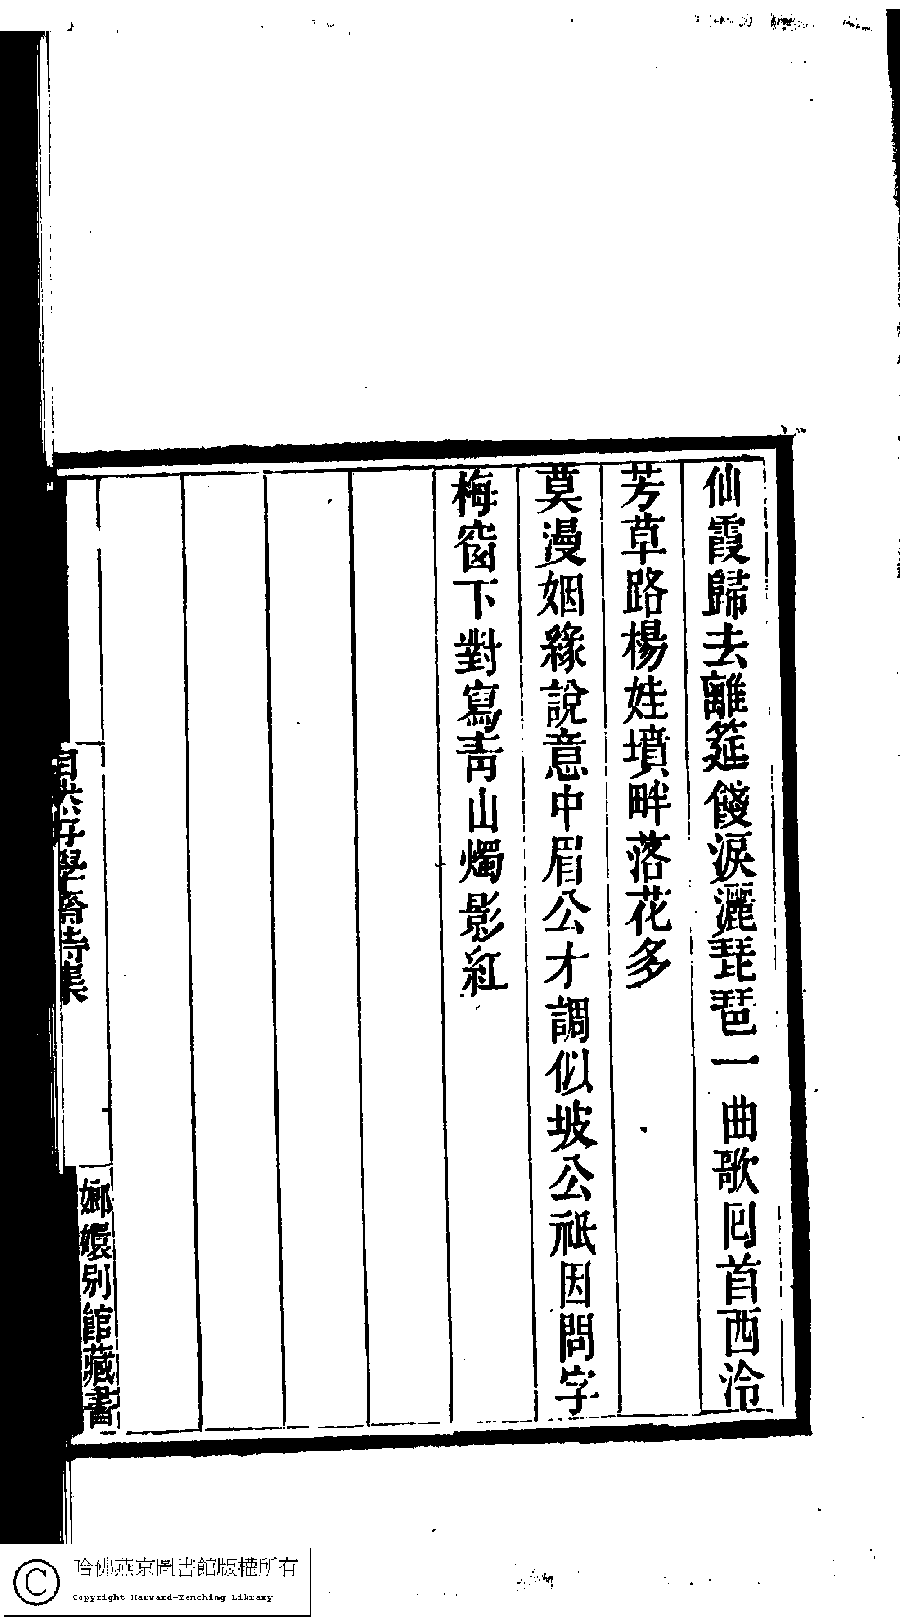 仙霞歸去離筵餞淚灑琵琶一曲歌囘首西泠
芳草路楊娃墳畔落花多
莫漫姻緣說意中眉公才調似坡公祇因問字
梅窗下對寫靑山燭影紅
好學齋詩集
嫏嬛別館藏書
哈佛燕京圖書館版權所有
Copyright Harvard-Yenching Library